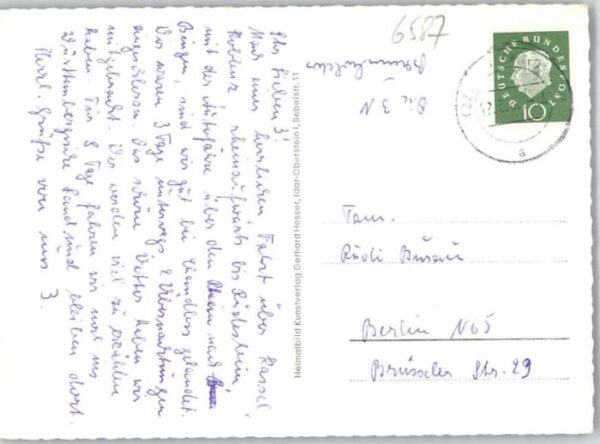 6587
Ihr Lieben 3!
Nach einer herrlichen Fahrt über Kassel,
Koblenz, rheinaufwärts bis Rüdesheim,
mit der Autofähre über den Rhein nach
Bingen, sind wir gut bei gelandet.
Wir waren 3 Tage unterwegs 2 Übernachtungen
eingeschlossen. Das schöne Wetter haben wir
mitgebracht. Wir werden viel zu erzählen
haben. Für 8 Tage fahren wir noch ins
Württembergische Land und bleiben dort.
Herzl. Grüße von uns 3.
Die 3 N
Heimatbild Kunstverlag Gerhard Hosser, Idar-Oberstein 1, Begelstr. 11
DEUTSCHE BUNDESPOST
10
a
Fam.
Rudi
Berlin N65
Brüsseler Str. 29